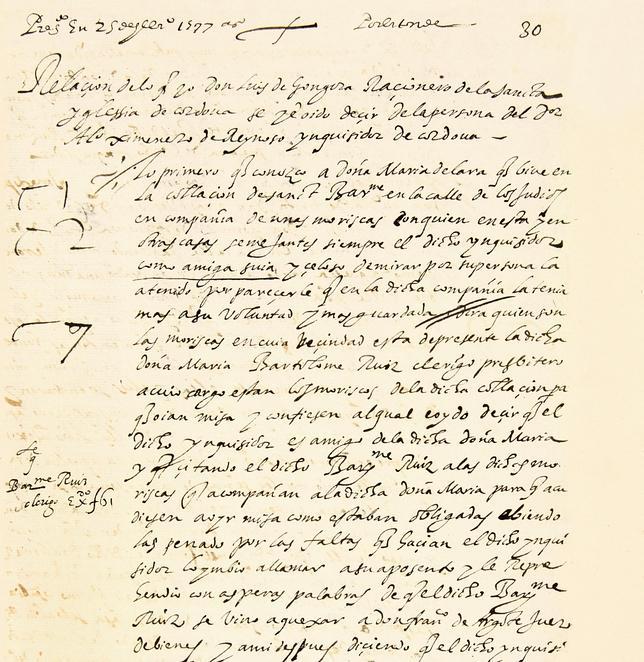 Presº En 25 de febrº 1597 aºs Por
30
Relacion de lo q yo don Luis de Gongora Racionero de la sancta
yglessia de cordoua se y e oido decir de la persona del dor
Alº ximenez de Reynoso ynquisidor de cordoua
Lo primero q conozco a doña Maria de lara q biue en
la collacion de sanct Barme en la calle de los Judios
en compañia de unas moriscas con quien en esta y en
otras casas semejantes siempre el dicho ynquisidor
como amiga suia y celoso de mirar por su persona la
a tenido por parecerle q en la dicha compañia la tenia
mas a su voluntad y mas guardada dira quien son
las moriscas en cuia vecindad esta de presente la dicha
doña Maria Bartolome Ruiz clerigo presbitero
a cuio cargo estan los moriscos de la dicha collacion pa
q oian misa y confiesen al qual e oydo decir q el
dicho ynquisidor es amigo de la dicha doña Maria
y q citando el dicho Barme Ruiz a las dichas mo
riscas q acompañan a la dicha doña Maria para q acu
diesen a oyr misa como estaban obligadas abiendo
las penado por las faltas q hacian el dicho ynqui
sidor lo ymbio a llamar a su aposento y le Repre
hendio con asperas palabras de q el dicho Barme
Ruiz se vino a quexar a don franº de Argote Juez
de bienes y a mi despues diciendo q el dicho ynquisi
Barme Ruiz
clerigo